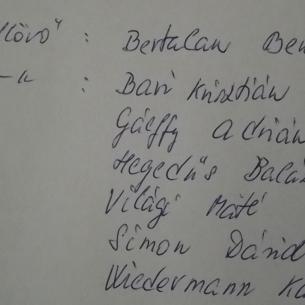 : Bertalan Ben
: Bari Krisztián
Gálffy Adrián
Hegedűs Balá
Világi Máté
Simon Dávid
Wiedermann K